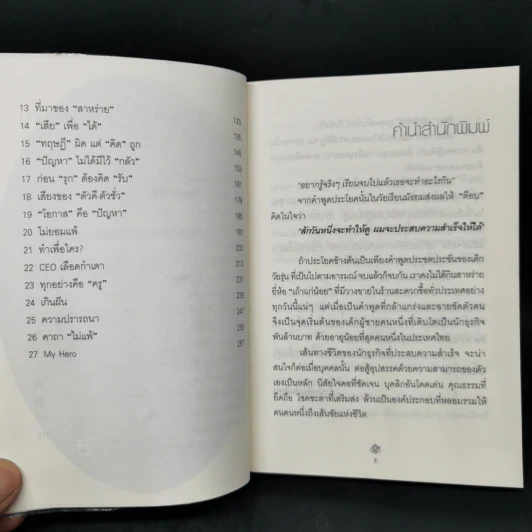 13 ที่มาของ "สาหร่าย" 125
14 "เสีย" เพื่อ "ได้"
15 "ทฤษฎี" ผิด แต่ "คิด" ถูก
16 "ปัญหา" ไม่ได้มีไว้ "กลัว"
17 ก่อน "รุก" ต้องคิด "รับ"
18 เสียงของ "ตัวดี-ตัวชั่ว"
19 "โอกาส" คือ "ปัญหา"
20 ไม่ยอมแพ้
21 ทำเพื่อใคร?
22 CEO เลือดกำเดา
23 ทุกอย่างคือ "ครู"
24 เกินฝืน
25 ความปรารถนา
26 คาถา "ไม่แพ้"
27 My Hero
คำนำสำนักพิมพ์
"อยากรู้จริงๆ เรียนจบไปแล้วเธอจะทำอะไรกิน"
จากคำพูดประโยคนั้นในวัยเรียนมัธยมส่งผลให้ "ต๊อบ"
คิดในใจว่า
"สักวันหนึ่งจะทำให้ดู ผมจะประสบความสำเร็จให้ได้"
ถ้าประโยคข้างต้นเป็นเพียงคำพูดประชดประชันของเด็ก
วัยรุ่น ที่เป็นไปตามอารมณ์ จบแล้วก็จบกัน เราคงไม่ได้กินสาหร่าย
ยี่ห้อ "เถ้าแก่น้อย" ที่มีวางขายในร้านสะดวกซื้อทั่วประเทศอย่าง
ทุกวันนี้แน่ๆ แต่เมื่อเป็นคำพูดที่กล้าแกร่งและอายขัดตัวตน
จึงเป็นจุดเริ่มต้นของเด็กผู้ชายคนหนึ่งที่เติบโตเป็นนักธุรกิจ
พันล้านบาท ด้วยอายุน้อยที่สุดคนหนึ่งในประเทศไทย
เส้นทางชีวิตของนักธุรกิจที่ประสบความสำเร็จ จะน่า
สนใจก็ต่อเมื่อบุคคลนั้น ต่อสู้อุปสรรคด้วยความสามารถของตัว
เองเป็นหลัก นิสัยใจคอที่ชัดเจน บุคลิกอันโดดเด่น คุณธรรมที่
ยึดถือ โชคชะตาที่เสริมส่ง ล้วนเป็นองค์ประกอบที่หลอมรวมให้
คนคนหนึ่งถึงเส้นชัยแห่งชีวิต